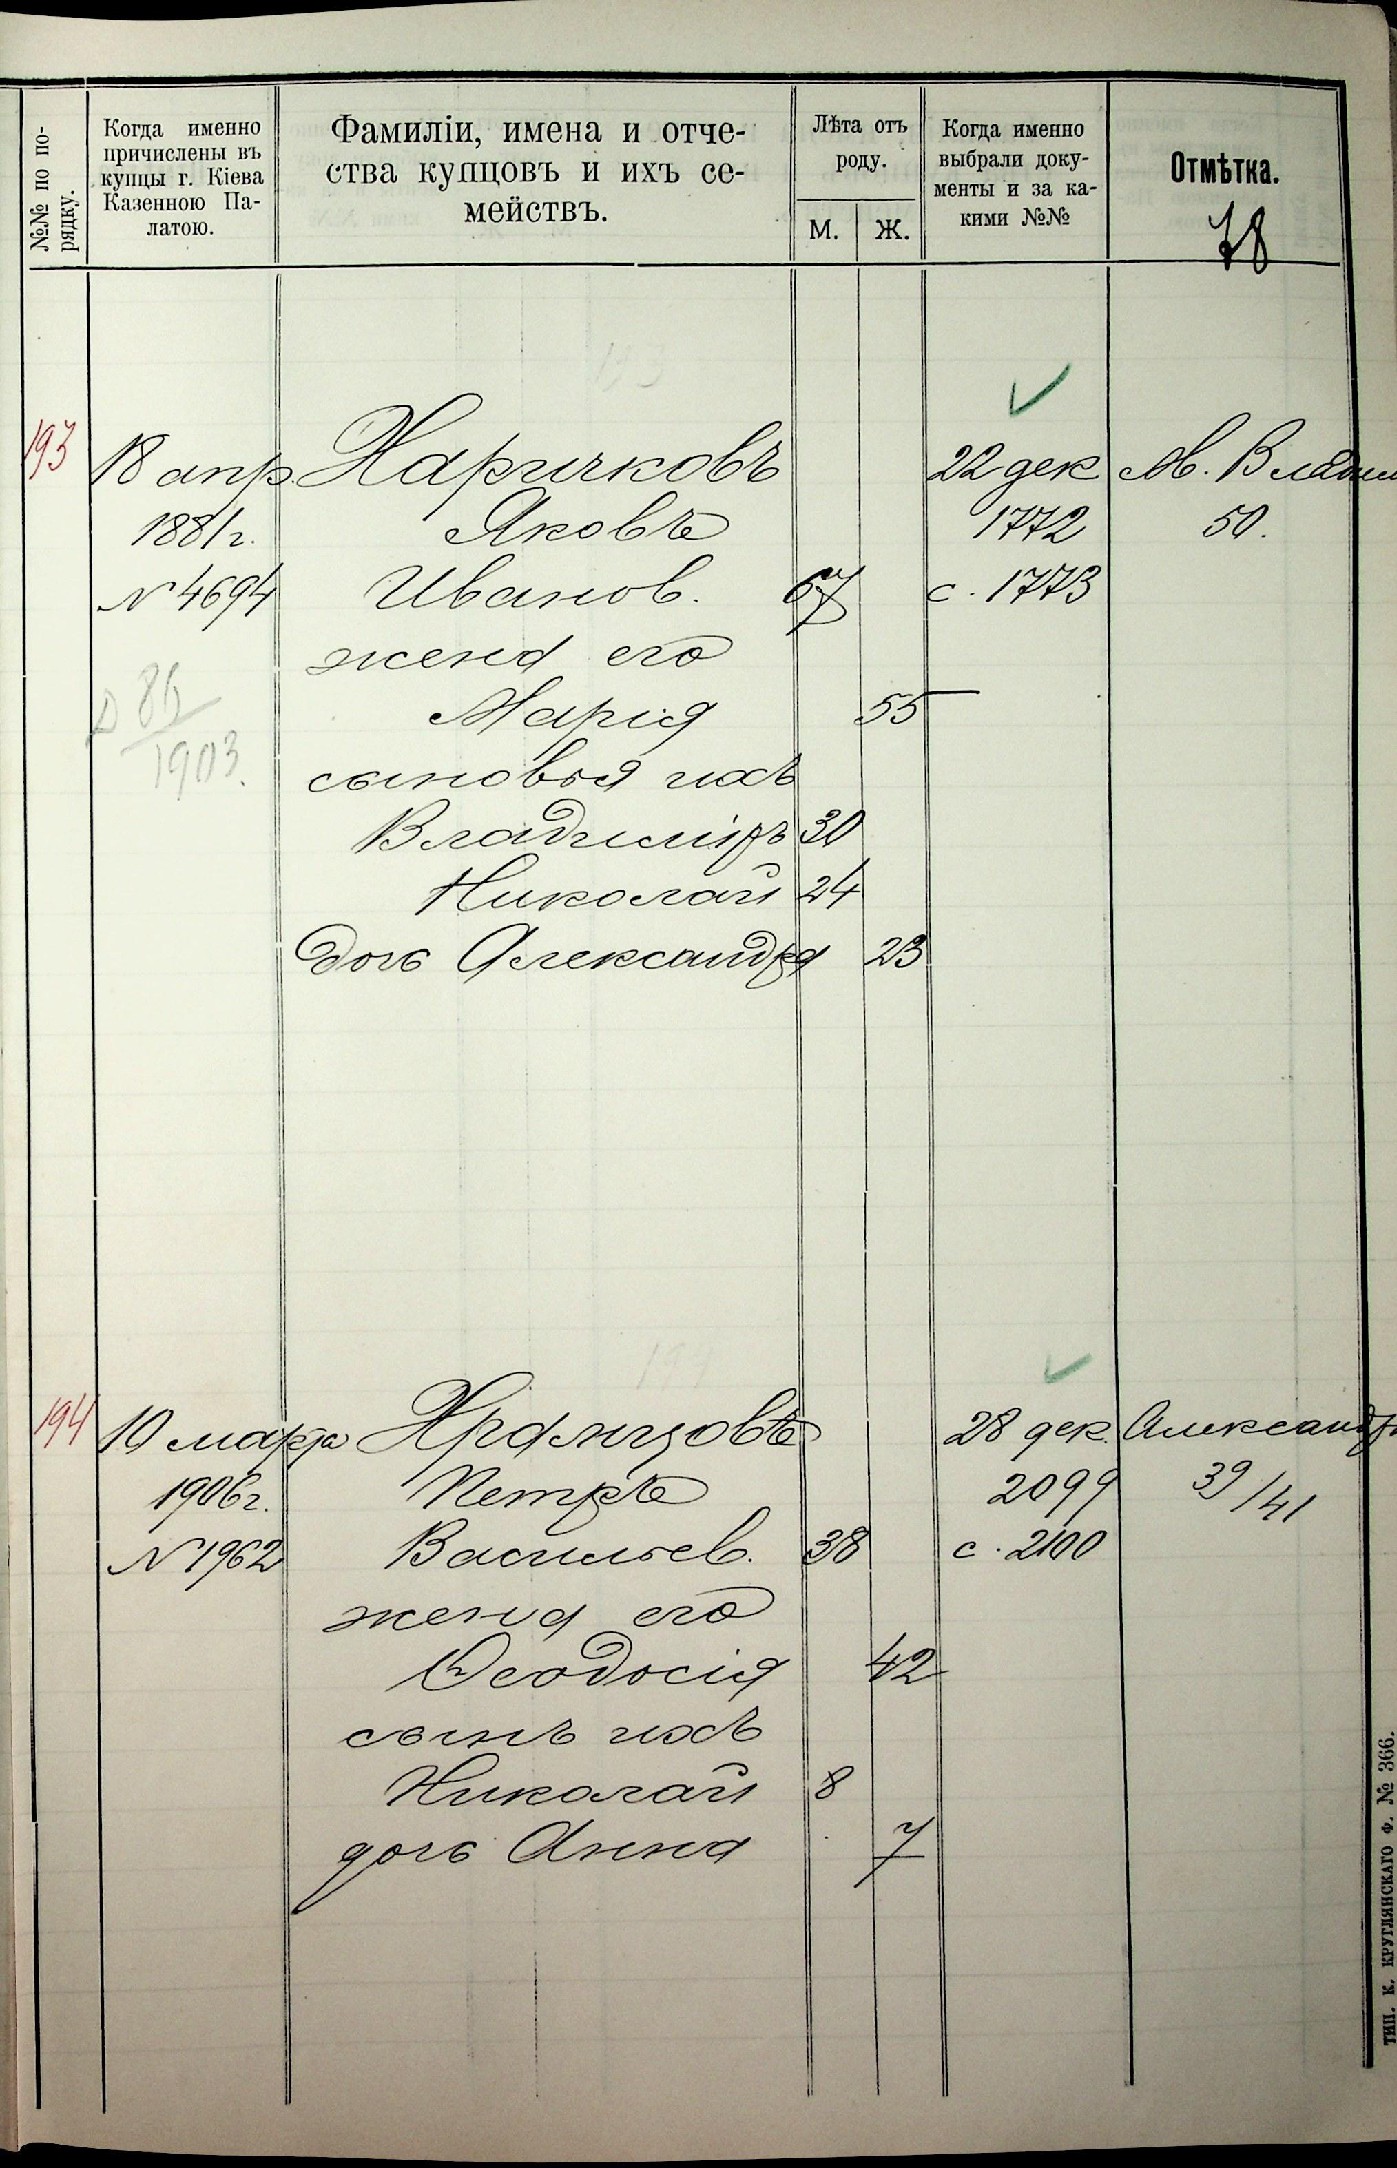 №№ по по-
рядку.
Когда именно
причислены въ
купцы г. Кіева
Казенною Па-
латою.
Фамиліи, имена и отче-
ства купцовъ и ихъ се-
мействъ.
Лѣта отъ
роду.
М.
Ж.
Когда именно
выбрали доку-
менты и за ка-
кими №№
Отмѣтка.
78
193
193 18 апр. Харичковъ 22 дек М. Владим
1881 г. Яковъ 1772 50.
№ 4694 Иванов. 67 с. 1773
жена его
86
Марія 55
1903.
сыновья ихъ
Владиміръ 30
Николай 24
дочь Александра 23
194
194 10 марта Хранцовъ 28 дек. Александр
1906 г. Петръ 2099 39/41
№ 1962 Васильев. 38 с. 2100
жена его
Ѳеодосія 42
сынъ ихъ
Николай 8
дочь Анна 7
ТИП. К. КРУГЛЯНСКАГО Ф. № 366.